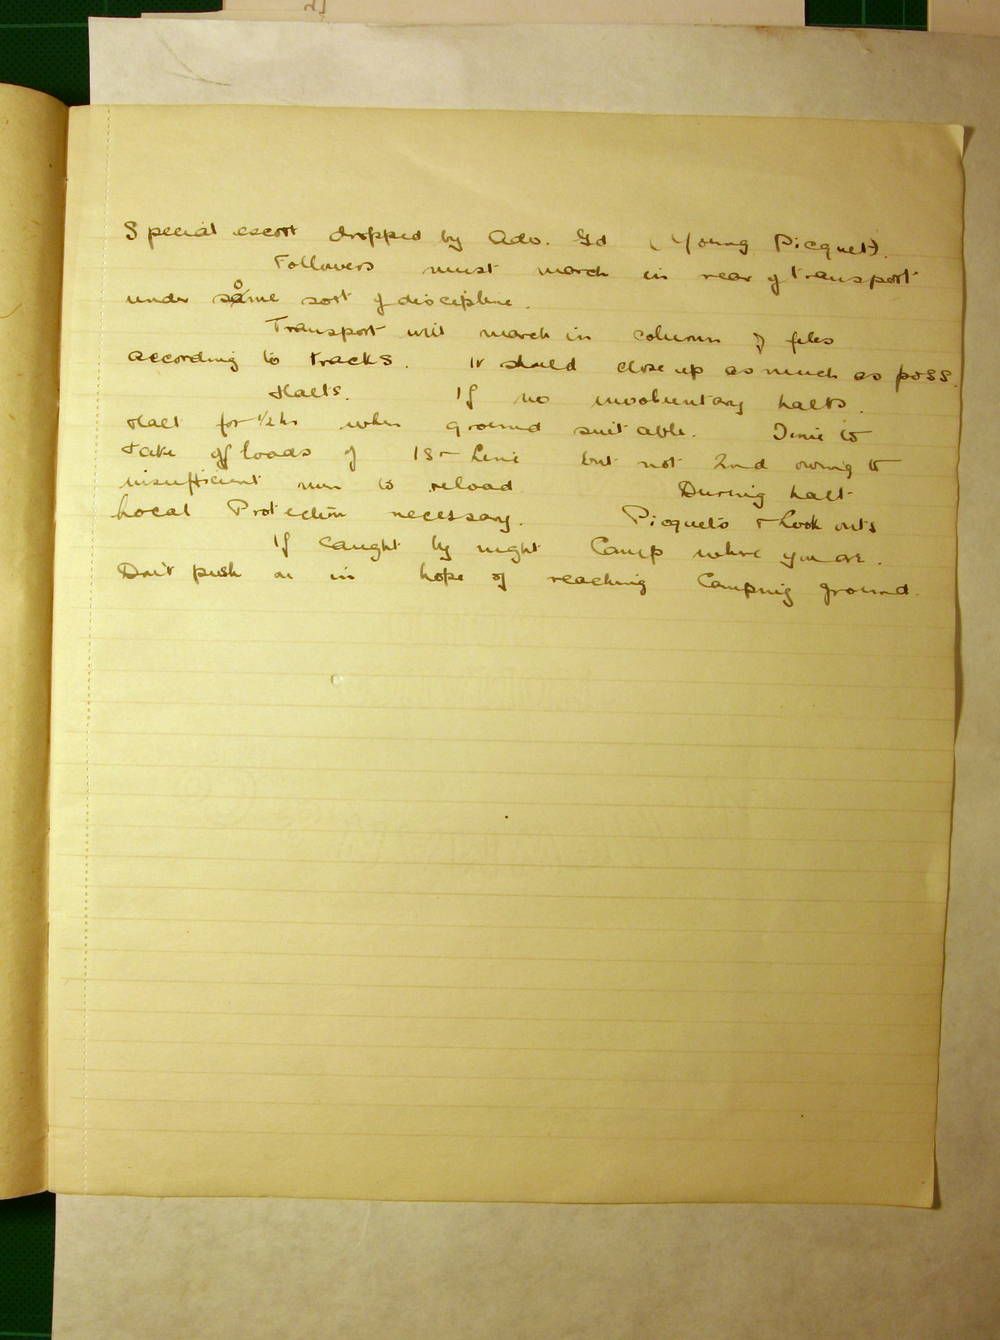 Special escort dropped by Adv. Gd (Young Picquet).
Followers must march in rear of transport
under some sort of discipline.
Transport will march in column of files
according to tracks. It should close up as much as poss.
Halts. If no involuntary halts.
Halt for 1/2 hr when ground suitable. Time to
take off loads of 1st Line but not 2nd owing to
insufficient men to reload. During halt
Local Protection necessary. Picquets & Look outs
If caught by night Camp where you are.
Don't push on in hope of reaching Camping ground.